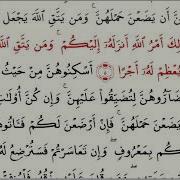 أَن يَضَعْنَ حَمْلَهُنَّ ۚ وَمَن يَتَّقِ ٱللَّهَ يَجْعَل
ذَٰلِكَ أَمْرُ ٱللَّهِ أَنزَلَهُۥٓ إِلَيْكُمْ ۚ وَمَن يَتَّقِ ٱللَّهَ
وَيُعْظِمْ لَهُۥٓ أَجْرًا ۝٥ أَسْكِنُوهُنَّ مِنْ حَيْثُ
تُضَآرُّوهُنَّ لِتُضَيِّقُوا۟ عَلَيْهِنَّ ۚ وَإِن كُنَّ أُو۟لَٰتِ
يَضَعْنَ حَمْلَهُنَّ ۚ فَإِنْ أَرْضَعْنَ لَكُمْ فَـَٔاتُوهُنَّ
بِمَعْرُوفٍ ۖ وَإِن تَعَاسَرْتُمْ فَسَتُرْضِعُ لَهُۥٓ